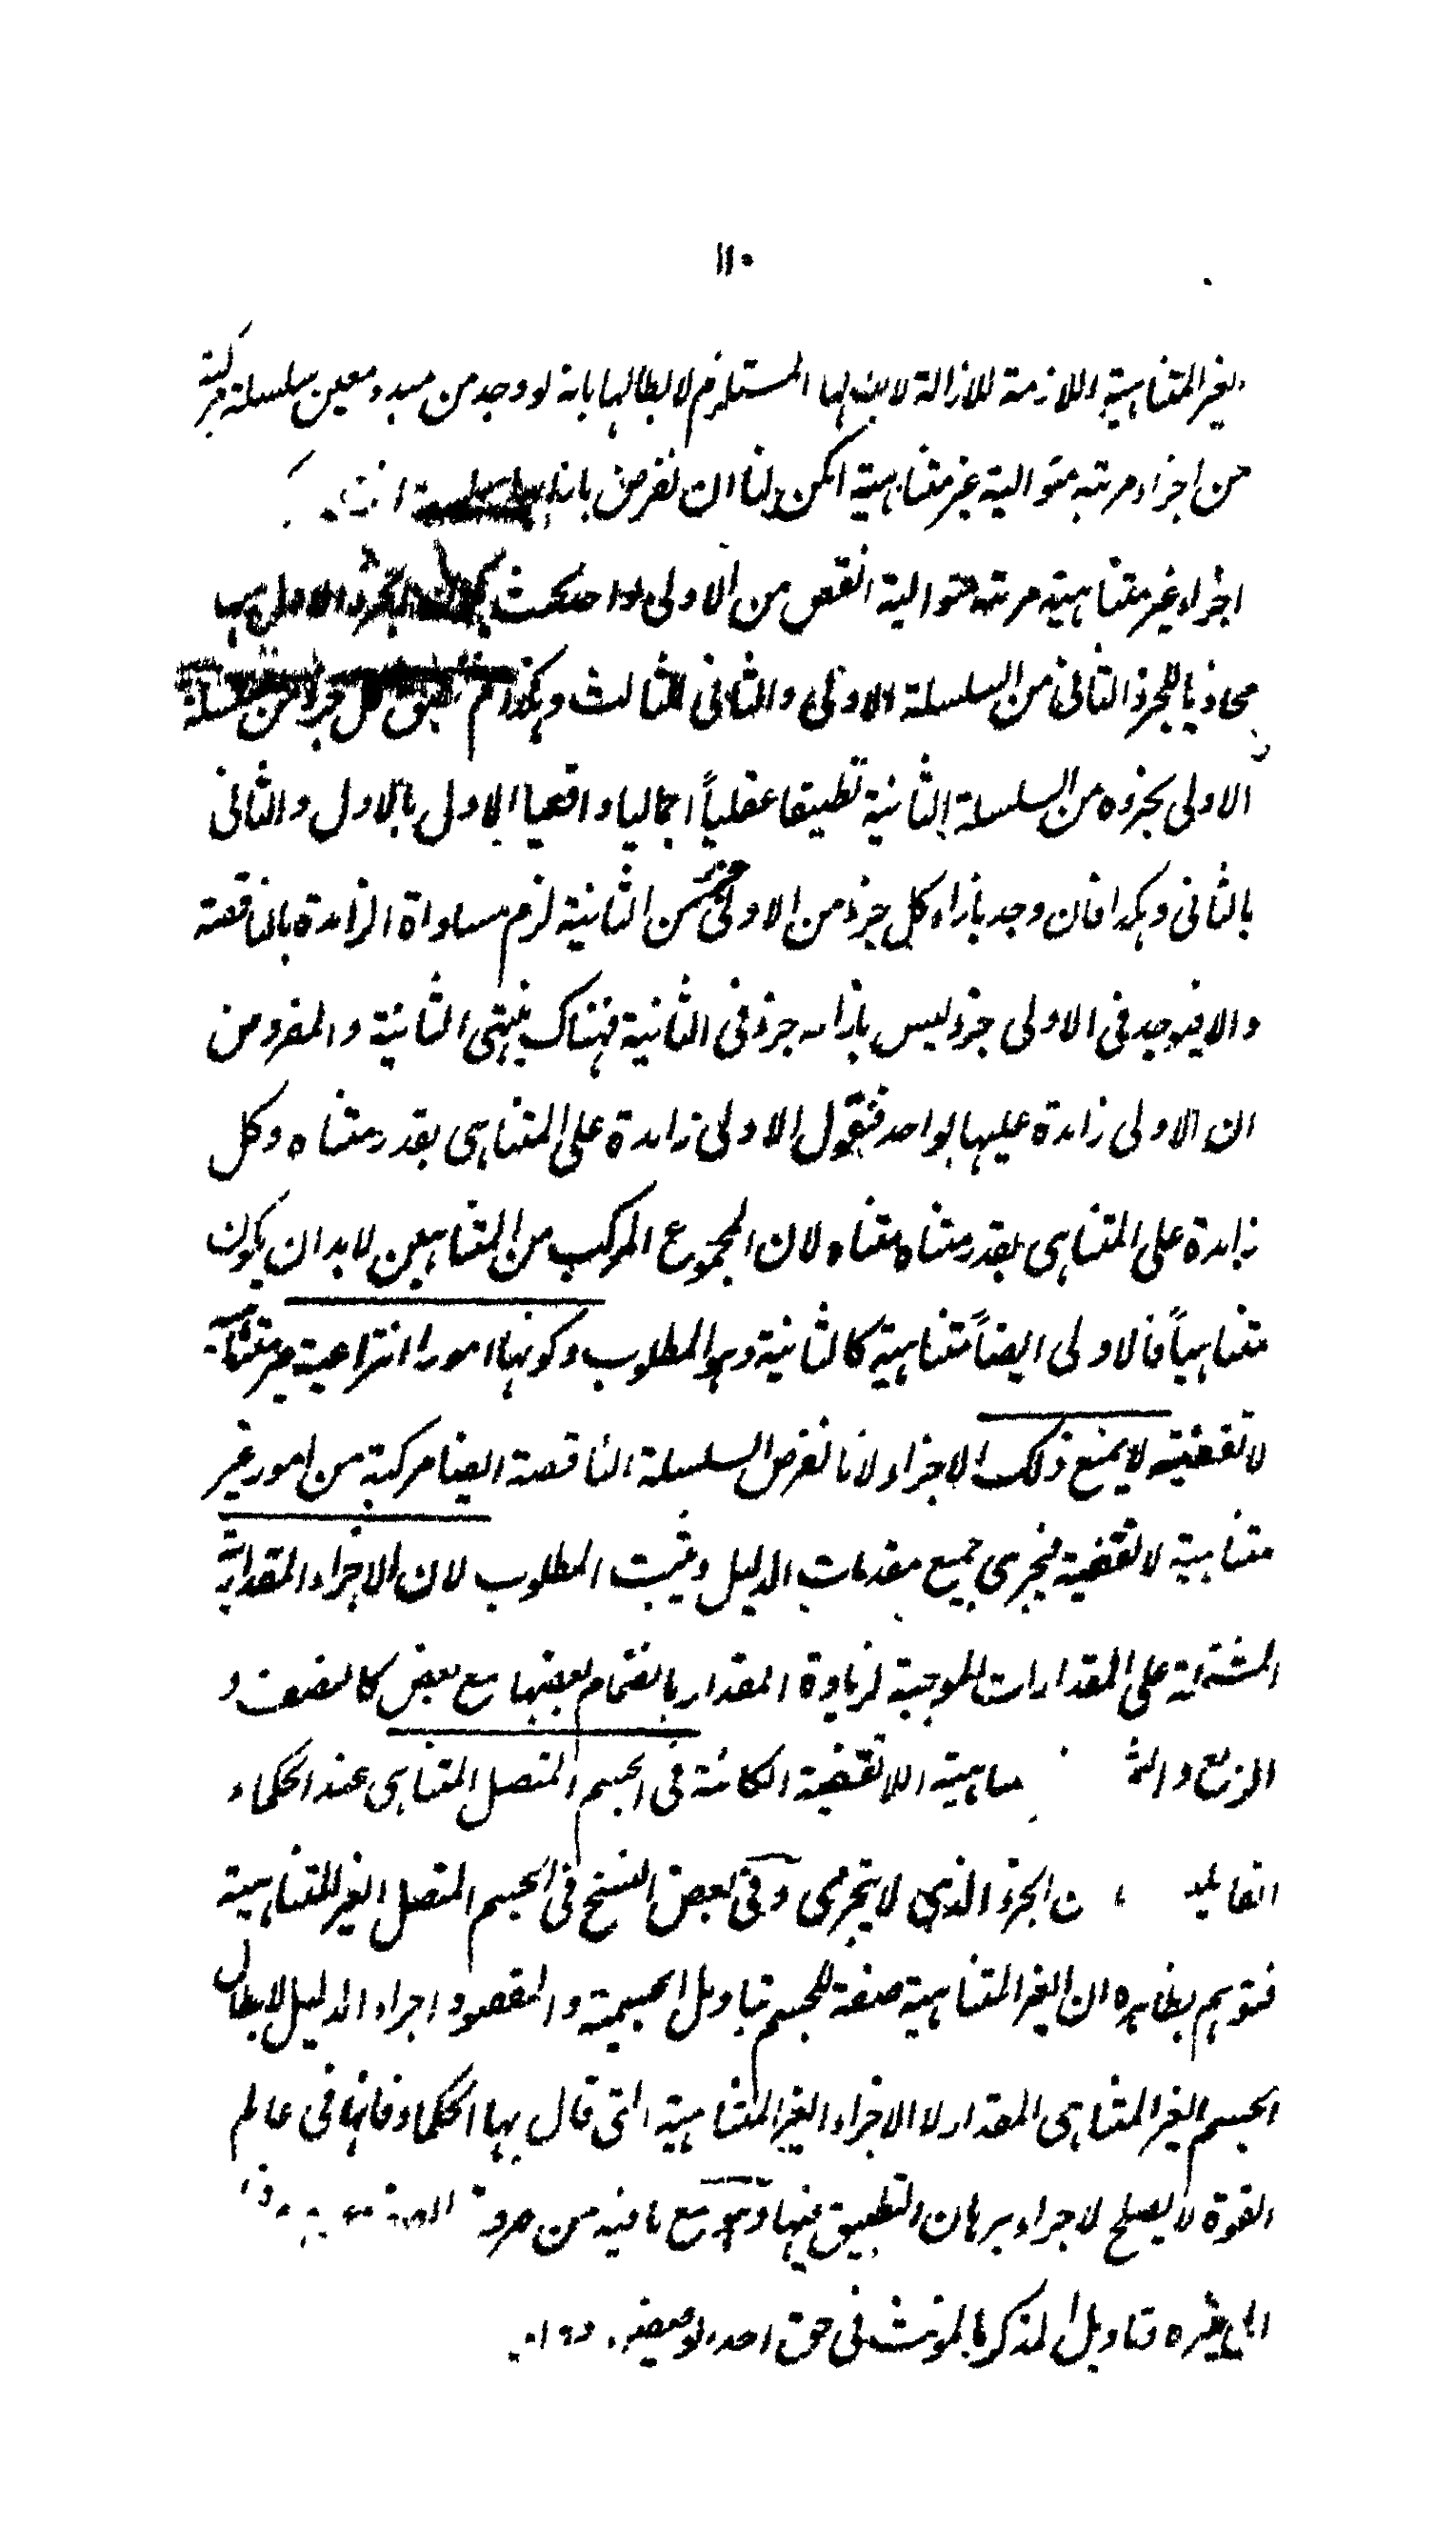 ١١٠
الغير المتناهية اللازمة للازالة لابطالها المستلزم لابطالها بانه لو وجد من مبدء معين سلسلة مركبة
من اجزاء مرتبة متوالية غير متناهية امكن لنا ان نفرض بازائها سلسلة
اجزاء غير متناهية مرتبة متوالية انقص من الاولى بواحد بحيث يكون الجزء الاول منها
محاذيا للجزء الثانى من السلسلة الاولى والثانى للثالث وهكذا ثم نطبق كل جزء من سلسلة
الاولى بجزء من السلسلة الثانية تطبيقا عقلياً اجماليا واقعيا الاول بالاول والثانى
بالثانى وهكذا فان وجد بازاء كل جزء من الاولى جزء من الثانية لزم مساواة الزائدة بالناقصة
والا فيوجد فى الاولى جزء ليس بازائه جزء فى الثانية فهناك ينتهى الثانية والمفروض
ان الاولى زائدة عليها بواحد فنقول الاولى زائدة على المتناهى بقدر متناه وكل
زايدة على المتناهى بقدر متناه متناه لان المجموع المركب من المتناهيين لابد ان يكون
متناهياً فالاولى ايضاً متناهية كالثانية وهو المطلوب وكونها امورا انتزاعية غير متناهية
لا تقفية لا يمنع ذلك الاجراء لانا نفرض السلسلة الناقصة ايضا مركبة من امور غير
متناهية لا تقفية فيجرى جميع مقدمات الدليل ويثبت المطلوب لان الاجزاء المقدارية
المشتملة على المقدارات الموجبة لزيادة المقدار بانضمام بعضها مع بعض كالنصف و
الربع والثمن ‏ متناهية اللاتقفية الكائنة فى الجسم المتصل المتناهى عند الحكماء
القايلين ‏ الجزء الذى لا يتجزى وفى بعض النسخ فى الجسم المتصل الغير المتناهية
فتوهم بظاهره ان الغير المتناهية صفة للجسم بتاويل الجسمية والمقصود اجراء الدليل لابطال
الجسم الغير المتناهى المقدار لا الاجزاء الغير المتناهية التى قال بها الحكماء فانها فى عالم
القوة لا يصلح لاجراء برهان التطبيق فيها وهو مع ما فيه من صرف
الى غيره وتاويل المذكر بالمؤنث فى حق احد